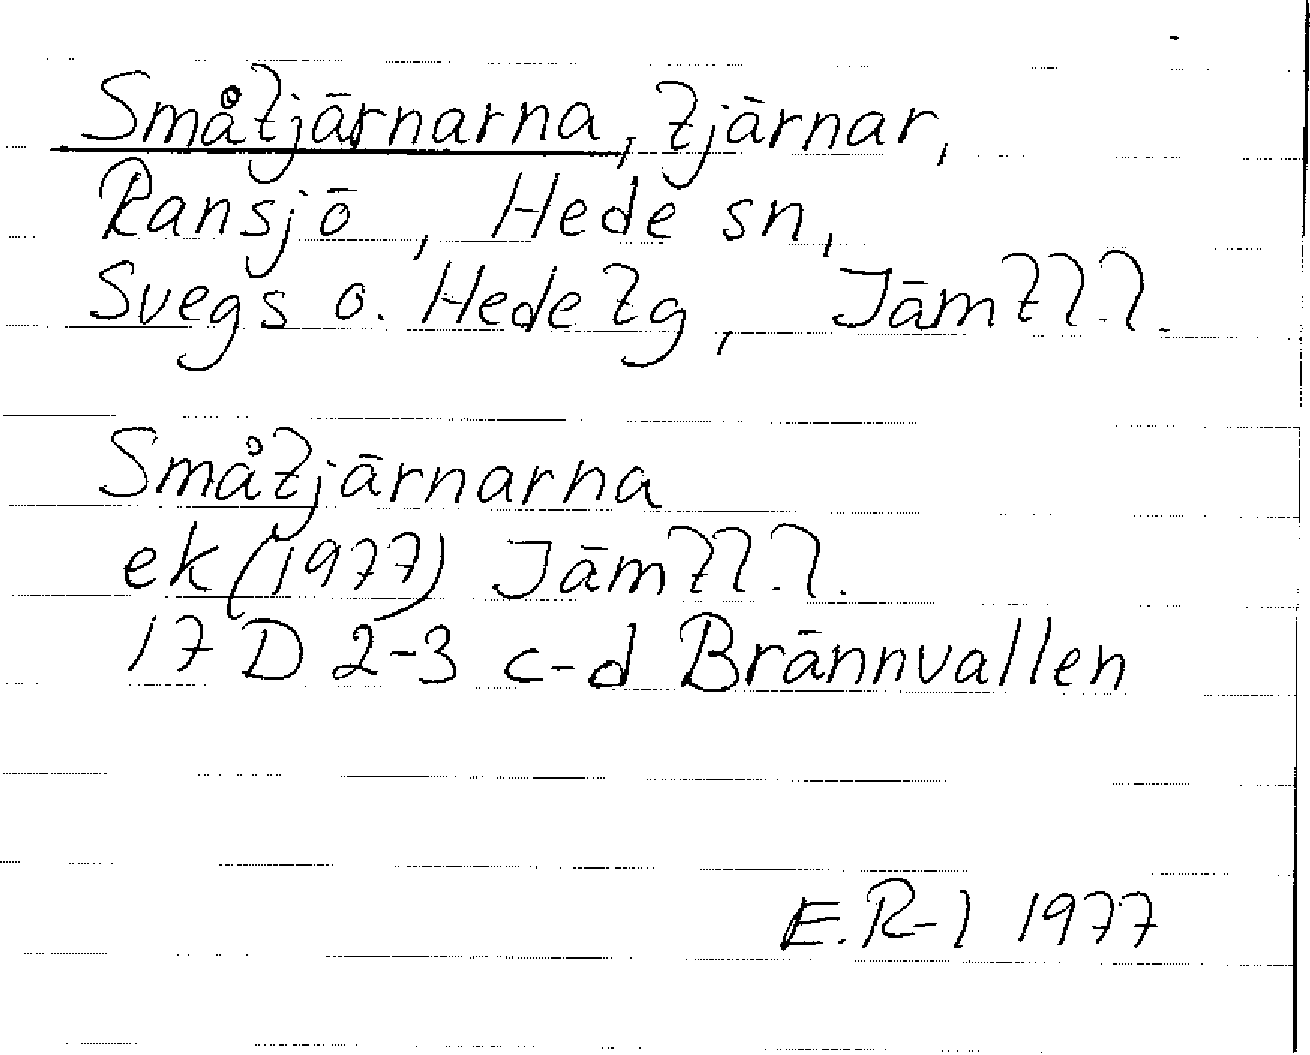 Småtjärnarna, tjärnar,
Ransjö, Hede sn,
Svegs o. Hede tg, Jämtl.l.
Småtjärnarna
ek (1977) Jämtl.l.
17 D 2-3 c-d Brännvallen
E.R-l 1977